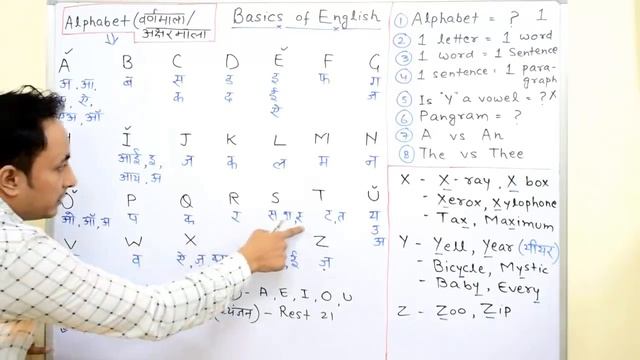 Alphabet (वर्णमाला/
अक्षरमाला)
Basics of English
Ă B C D Ĕ F G
अ, आ, ब स ड इ फ ग
ए, ऐ, क द ई ज
अ, ऑ ऐ
Ĭ J K L M N
आई, इ, ज क ल म न
आय, अ
Ŏ P Q R S T Ŭ
ओ, ऑ, अ प क र स, श, ट, त य
उ
अ
V W X Z
व ज़
A, E, I, O, U
(व्यंजन) - Rest 21
① Alphabet = ? 1
② 1 letter = 1 word
③ 1 word = 1 Sentence
④ 1 sentence = 1 para-
graph
⑤ Is "Y" a vowel = ? x
⑥ Pangram = ?
⑦ A vs An
⑧ The vs Thee
X - X-ray, X box
- Xerox, Xylophone
- Tax, Maximum
Y - Yell, Year (यीयर)
- Bicycle, Mystic
- Baby, Every
Z - Zoo, Zip